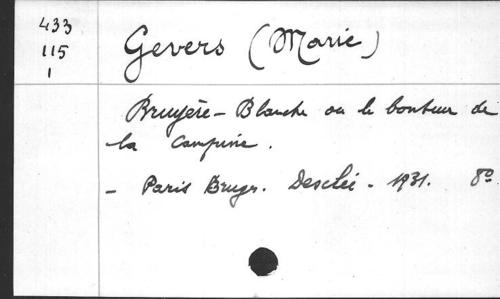 433
115
1
Gevers (Marie)
Bruyère-Blanche ou le bonheur de
la Campine.
- Paris Bruges. Desclée - 1931. 8°